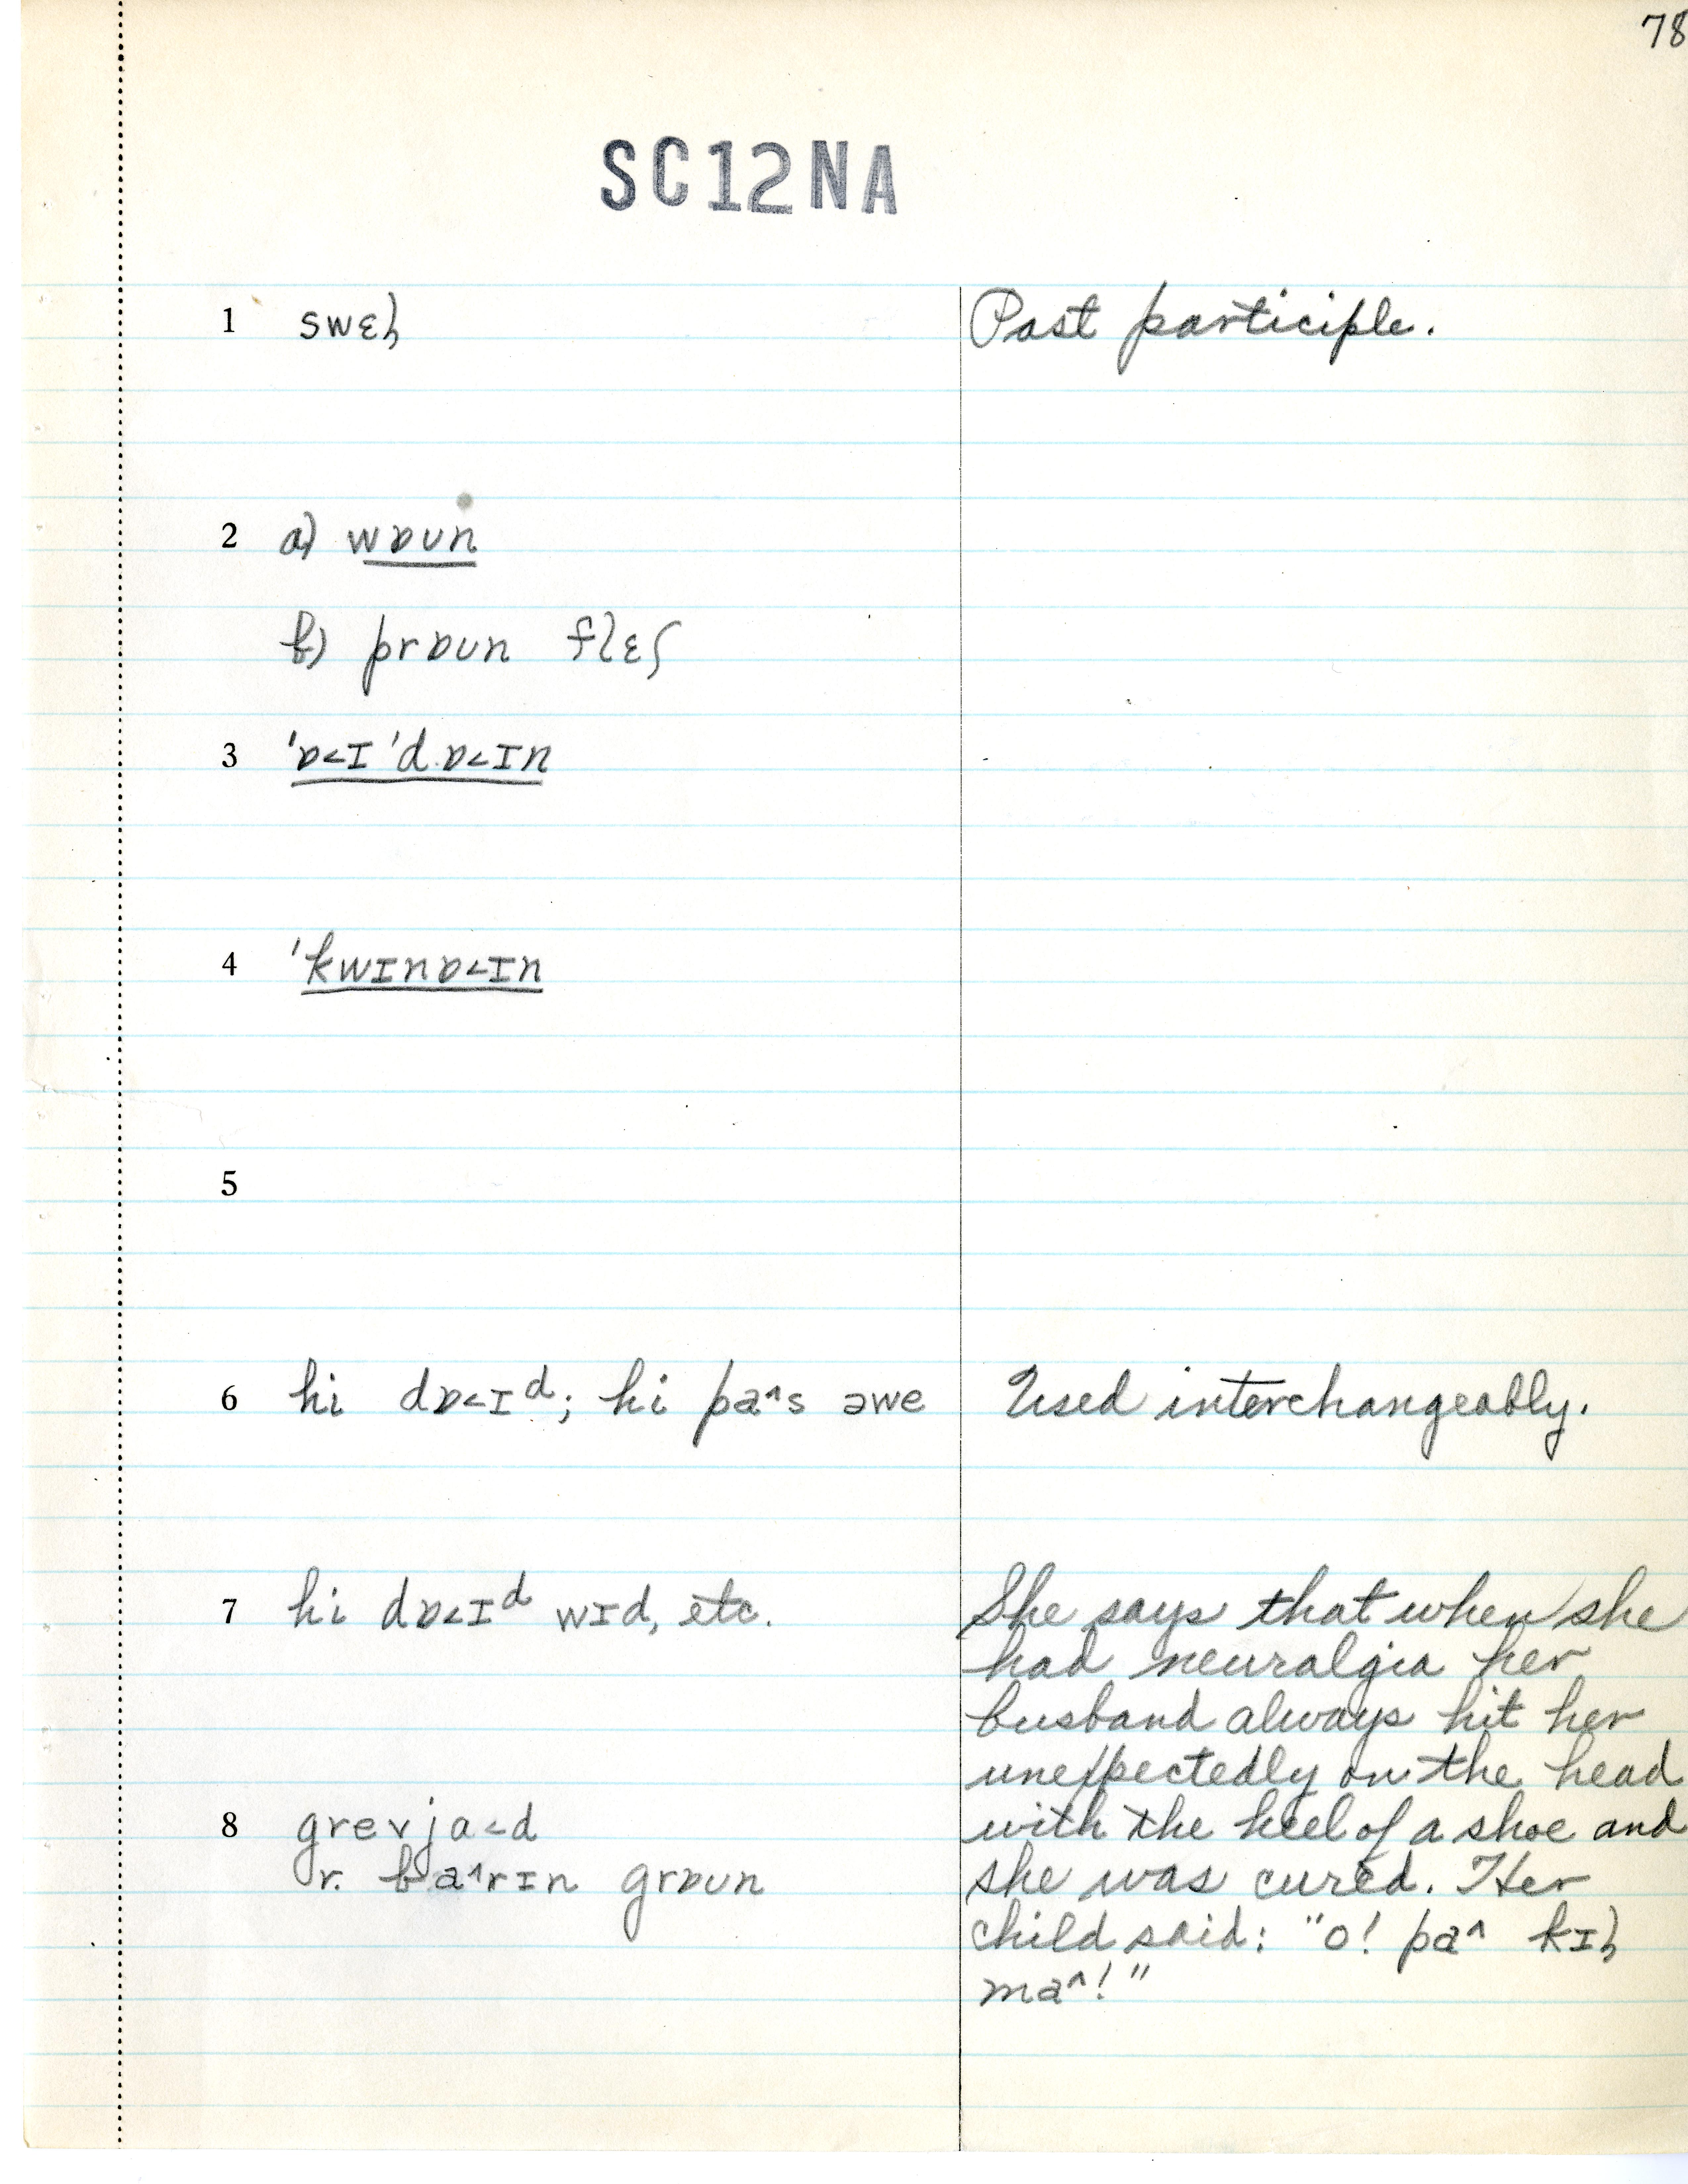 78
SC12NA
1 swɛɫ Past participle.
2 a) wɒʊn
b) prɒʊn flɛʃ
3 'ɒ<ɪ 'd.ɒ<ɪn
4 'kwɪnɒ<ɪn
5
6 hi dɒ<ɪᵈ; hi pa^s əwe Used interchangeably.
7 hi dɒ<ɪᵈ wɪd, etc. She says that when she
had neuralgia her
husband always hit her
unexpectedly on the head
8 grevja<d with the heel of a shoe and
r. ba^rɪn grɒʊn she was cured. Her
child said: "o! pa^ kɪɫ
ma^!"